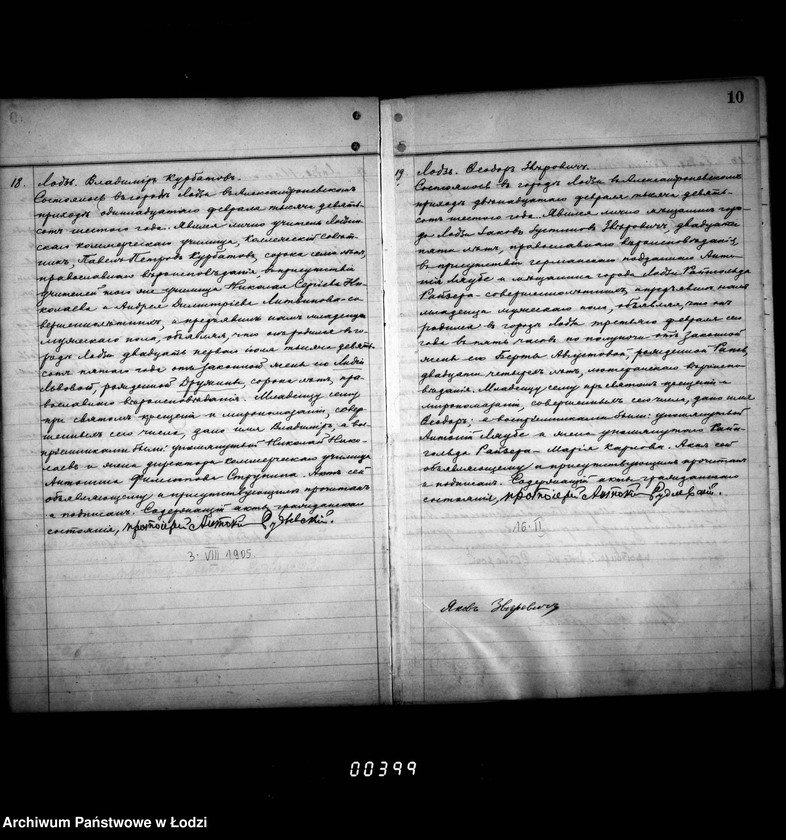 10
18. Лодзь. Владимiръ Курбатовъ.
Состоялось въ городѣ Лодзи въ Александроневскомъ
приходѣ одиннадцатаго февраля тысяча девять-
сотъ шестого года. Явился лично учитель Лодзин-
скаго коммерческаго училища, Коллежскiй Совѣт-
никъ Павелъ Петровъ Курбатовъ, сорока семи лѣтъ,
православнаго вѣроисповѣданiя, въ присутствiи
учителей того же училища Николая Сергiева Ни-
колаева и Андрея Димитрiева Литвинова со-
вершеннолѣтнихъ, и предъявилъ намъ младенца
мужескаго пола, объявляя, что онъ родился въ го-
родѣ Лодзи двадцать перваго iюля тысяча девять-
сотъ пятаго года отъ законной жены его Лидiи
Львовой, рожденной Дружинъ, сорока лѣтъ, пра-
вославнаго вѣроисповѣданiя. Младенцу сему
при святомъ крещенiи и миропомазанiи, совер-
шенныхъ сего числа, дано имя Владимiръ, а вос-
прiемниками были: упомянутый Николай Нико-
лаевъ и жена директора коммерческаго училища
Антонина Филиппова Струнина. Актъ сей
объявляющему и присутствующимъ прочитанъ
и подписанъ. Содержащiй акты гражданскаго
состоянiя, протоiерей Антонiй Рудлевскiй.
3. VIII 1905.
19. Лодзь. Ѳеодоръ Звѣровичъ.
Состоялось въ городѣ Лодзи въ Александроневскомъ
приходѣ двѣнадцатаго февраля тысяча девять-
сотъ шестого года. Явился лично мѣщанинъ горо-
да Лодзи Яковъ Iустиновъ Звѣровичъ, двадцати
пяти лѣтъ, православнаго вѣроисповѣданiя,
въ присутствiи германскаго подданнаго Анто-
нiя Якубе и мѣщанина города Лодзи Райнгольда
Райзера совершеннолѣтнихъ, и предъявилъ намъ
младенца мужескаго пола, объявляя, что онъ
родился въ городѣ Лодзи третьяго февраля сего
года въ пять часовъ по полуночи отъ законной
жены его Берты Августовой, рожденной
двадцати четырехъ лѣтъ, лютеранскаго вѣроиспо-
вѣданiя. Младенцу сему при святомъ крещенiи и
миропомазанiи, совершенныхъ сего числа, дано имя
Ѳеодоръ, а воспрiемниками были: упомянутый
Антонiй Якубе и жена упомянутаго Райн-
гольда Райзера Марiя Карлова. Актъ сей
объявляющему и присутствующимъ прочитанъ
и подписанъ. Содержащiй акты гражданскаго
состоянiя, протоiерей Антонiй Рудлевскiй.
16. II
Яковъ Звѣровичъ
00399
Archiwum Państwowe w Łodzi